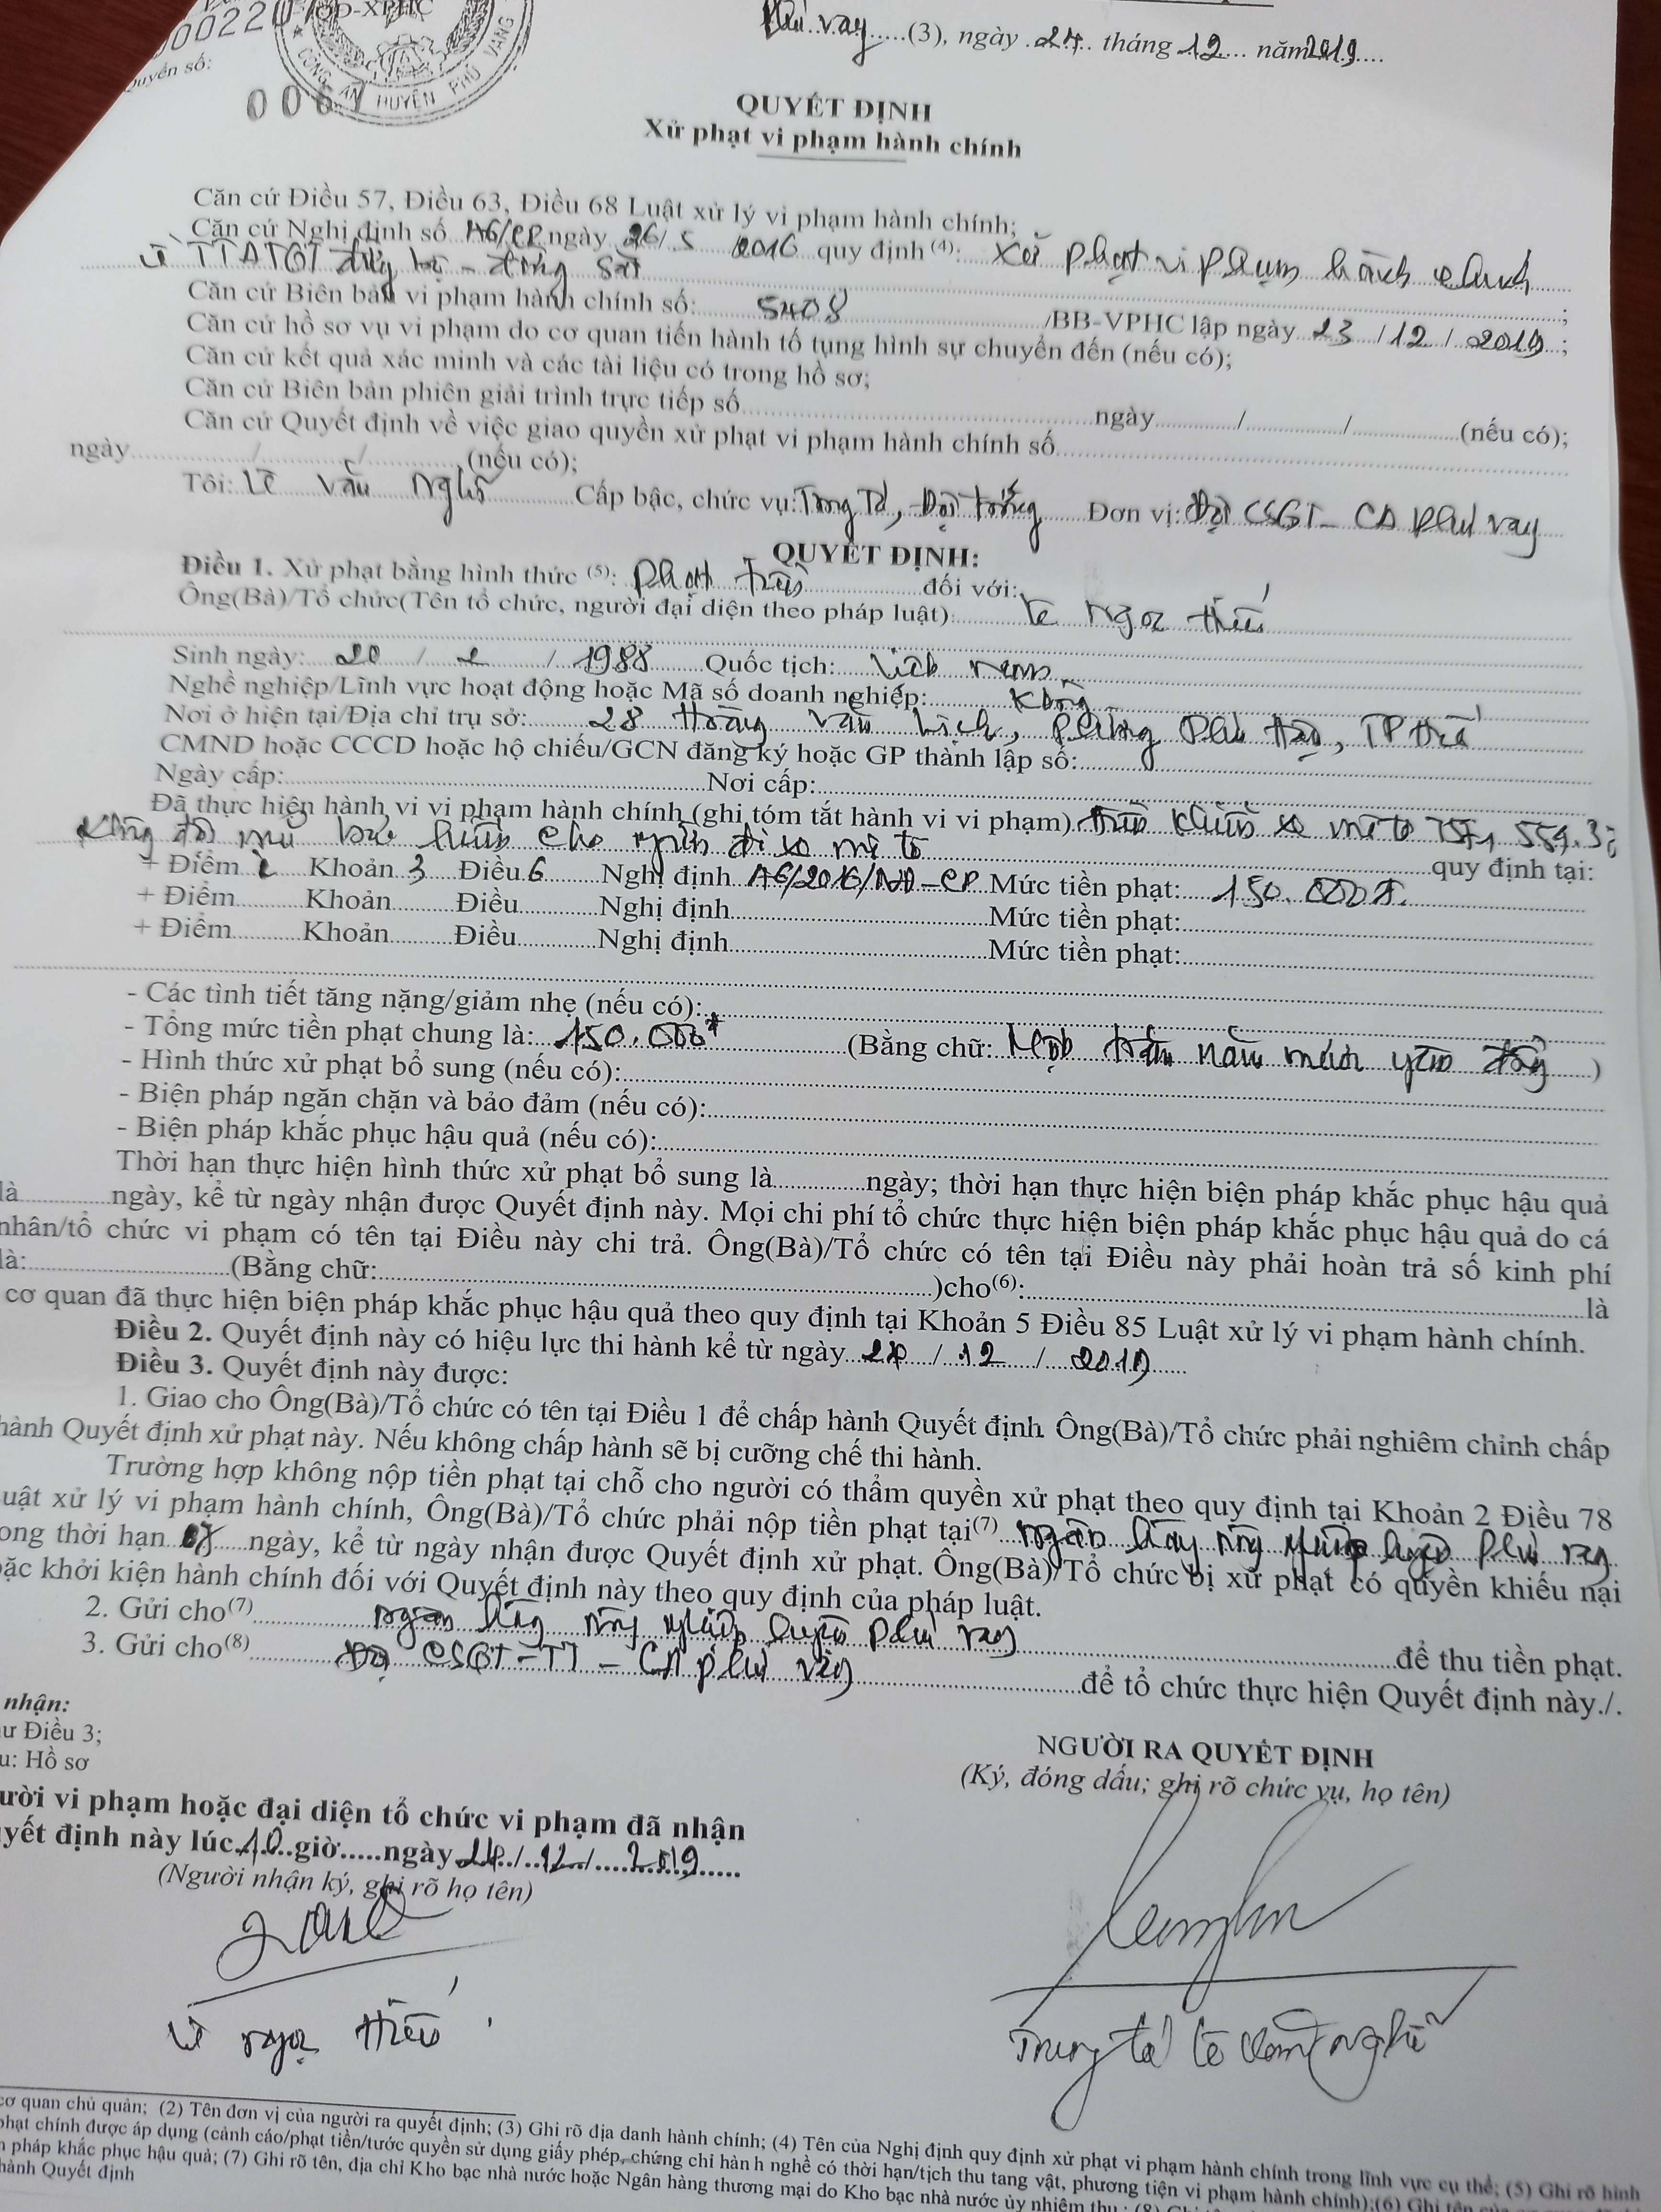 00022 /QĐ-XPHC
Quyển số:
006
CÔNG AN HUYỆN PHÚ VANG
Phú Vang (3), ngày 24 tháng 12 năm 2019
QUYẾT ĐỊNH
Xử phạt vi phạm hành chính
Căn cứ Điều 57, Điều 63, Điều 68 Luật xử lý vi phạm hành chính;
Căn cứ Nghị định số 46/CP ngày 26/5 /2016 quy định (4): Xử phạt vi phạm hành chính
về TTATGT đường bộ - đường sắt ;
Căn cứ Biên bản vi phạm hành chính số: 5408 /BB-VPHC lập ngày 23 /12 / 2019 ;
Căn cứ hồ sơ vụ vi phạm do cơ quan tiến hành tố tụng hình sự chuyển đến (nếu có);
Căn cứ kết quả xác minh và các tài liệu có trong hồ sơ;
Căn cứ Biên bản phiên giải trình trực tiếp số ngày / / (nếu có);
Căn cứ Quyết định về việc giao quyền xử phạt vi phạm hành chính số
ngày / / (nếu có);
Tôi: Lê Văn Nghĩa Cấp bậc, chức vụ: Trung Tá, Đội trưởng Đơn vị: Đội CSGT - CA Phú Vang
QUYẾT ĐỊNH:
Điều 1. Xử phạt bằng hình thức (5): Phạt tiền đối với:
Ông(Bà)/Tổ chức(Tên tổ chức, người đại diện theo pháp luật): Lê Ngọc Hiếu
Sinh ngày: 20 / 2 / 1988 Quốc tịch: Việt Nam
Nghề nghiệp/Lĩnh vực hoạt động hoặc Mã số doanh nghiệp: Không
Nơi ở hiện tại/Địa chỉ trụ sở: 28 Hoàng Văn Lịch, Phường Phú Hậu, TP Huế
CMND hoặc CCCD hoặc hộ chiếu/GCN đăng ký hoặc GP thành lập số:
Ngày cấp: Nơi cấp:
Đã thực hiện hành vi vi phạm hành chính (ghi tóm tắt hành vi vi phạm) Điều khiển xe mô tô 75F1
không đội mũ bảo hiểm cho người đi xe mô tô quy định tại:
+ Điểm i Khoản 3 Điều 6 Nghị định 46/2016/NĐ-CP Mức tiền phạt: 150.000đ.
+ Điểm Khoản Điều Nghị định Mức tiền phạt:
+ Điểm Khoản Điều Nghị định Mức tiền phạt:
- Các tình tiết tăng nặng/giảm nhẹ (nếu có):
- Tổng mức tiền phạt chung là: 150.000đ (Bằng chữ: Một trăm năm mươi nghìn đồng )
- Hình thức xử phạt bổ sung (nếu có):
- Biện pháp ngăn chặn và bảo đảm (nếu có):
- Biện pháp khắc phục hậu quả (nếu có):
Thời hạn thực hiện hình thức xử phạt bổ sung là ngày; thời hạn thực hiện biện pháp khắc phục hậu quả
là ngày, kể từ ngày nhận được Quyết định này. Mọi chi phí tổ chức thực hiện biện pháp khắc phục hậu quả do cá
nhân/tổ chức vi phạm có tên tại Điều này chi trả. Ông(Bà)/Tổ chức có tên tại Điều này phải hoàn trả số kinh phí
là: (Bằng chữ: )cho(6): là
cơ quan đã thực hiện biện pháp khắc phục hậu quả theo quy định tại Khoản 5 Điều 85 Luật xử lý vi phạm hành chính.
Điều 2. Quyết định này có hiệu lực thi hành kể từ ngày 24 / 12 / 2019
Điều 3. Quyết định này được:
1. Giao cho Ông(Bà)/Tổ chức có tên tại Điều 1 để chấp hành Quyết định. Ông(Bà)/Tổ chức phải nghiêm chỉnh chấp
hành Quyết định xử phạt này. Nếu không chấp hành sẽ bị cưỡng chế thi hành.
Trường hợp không nộp tiền phạt tại chỗ cho người có thẩm quyền xử phạt theo quy định tại Khoản 2 Điều 78
uật xử lý vi phạm hành chính, Ông(Bà)/Tổ chức phải nộp tiền phạt tại(7) Ngân hàng nông nghiệp huyện Phú Vang
ong thời hạn 07 ngày, kể từ ngày nhận được Quyết định xử phạt. Ông(Bà)/Tổ chức bị xử phạt có quyền khiếu nại
oặc khởi kiện hành chính đối với Quyết định này theo quy định của pháp luật.
2. Gửi cho(7) Ngân hàng nông nghiệp huyện Phú Vang để thu tiền phạt.
3. Gửi cho(8) Đội CSGT-TT - CA Phú Vang để tổ chức thực hiện Quyết định này./.
nhận:
ư Điều 3;
u: Hồ sơ
NGƯỜI RA QUYẾT ĐỊNH
(Ký, đóng dấu; ghi rõ chức vụ, họ tên)
ười vi phạm hoặc đại diện tổ chức vi phạm đã nhận
yết định này lúc 10 giờ.....ngày 24 / 12 / 2019
(Người nhận ký, ghi rõ họ tên)
Lê Ngọc Hiếu
Trung tá Lê Văn Nghĩa
cơ quan chủ quản; (2) Tên đơn vị của người ra quyết định; (3) Ghi rõ địa danh hành chính; (4) Tên của Nghị định quy định xử phạt vi phạm hành chính trong lĩnh vực cụ thể; (5) Ghi rõ hình
phạt chính được áp dụng (cảnh cáo/phạt tiền/tước quyền sử dụng giấy phép, chứng chỉ hành nghề có thời hạn/tịch thu tang vật, phương tiện vi phạm hành chính);(6) Ghi tên
n pháp khắc phục hậu quả; (7) Ghi rõ tên, địa chỉ Kho bạc nhà nước hoặc Ngân hàng thương mại do Kho bạc nhà nước ủy nhiệm thu ; (8)
hành Quyết định